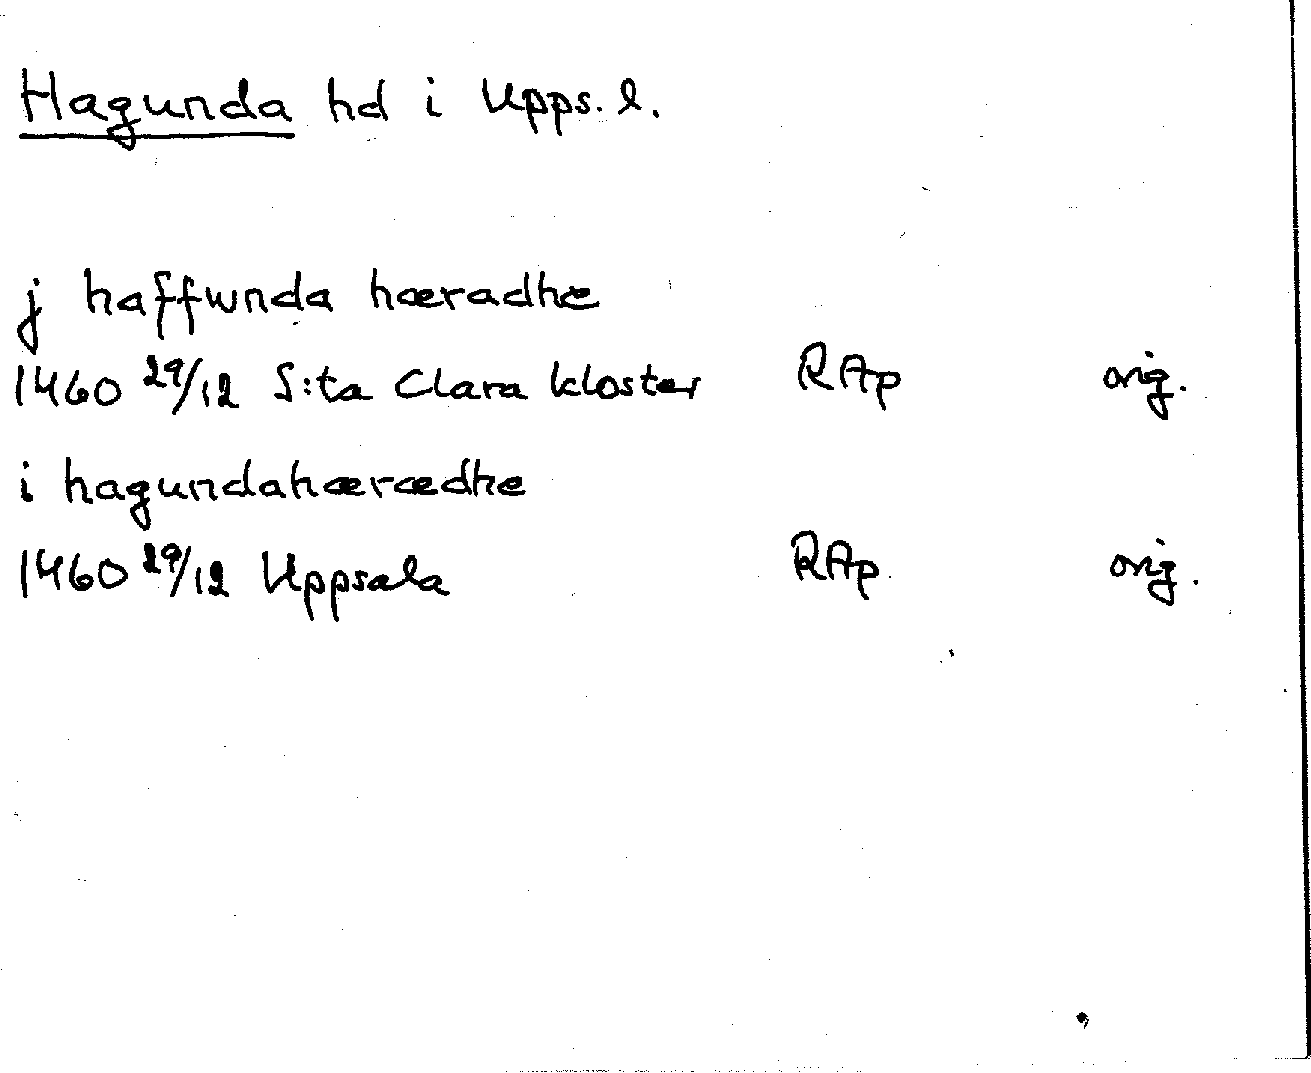 Hagunda hd i Upps. l.
j haffwnda hæradhe
1460 29/12 S:ta Clara kloster RAp orig.
i hagundahærædhe
1460 29/12 Uppsala RAp orig.